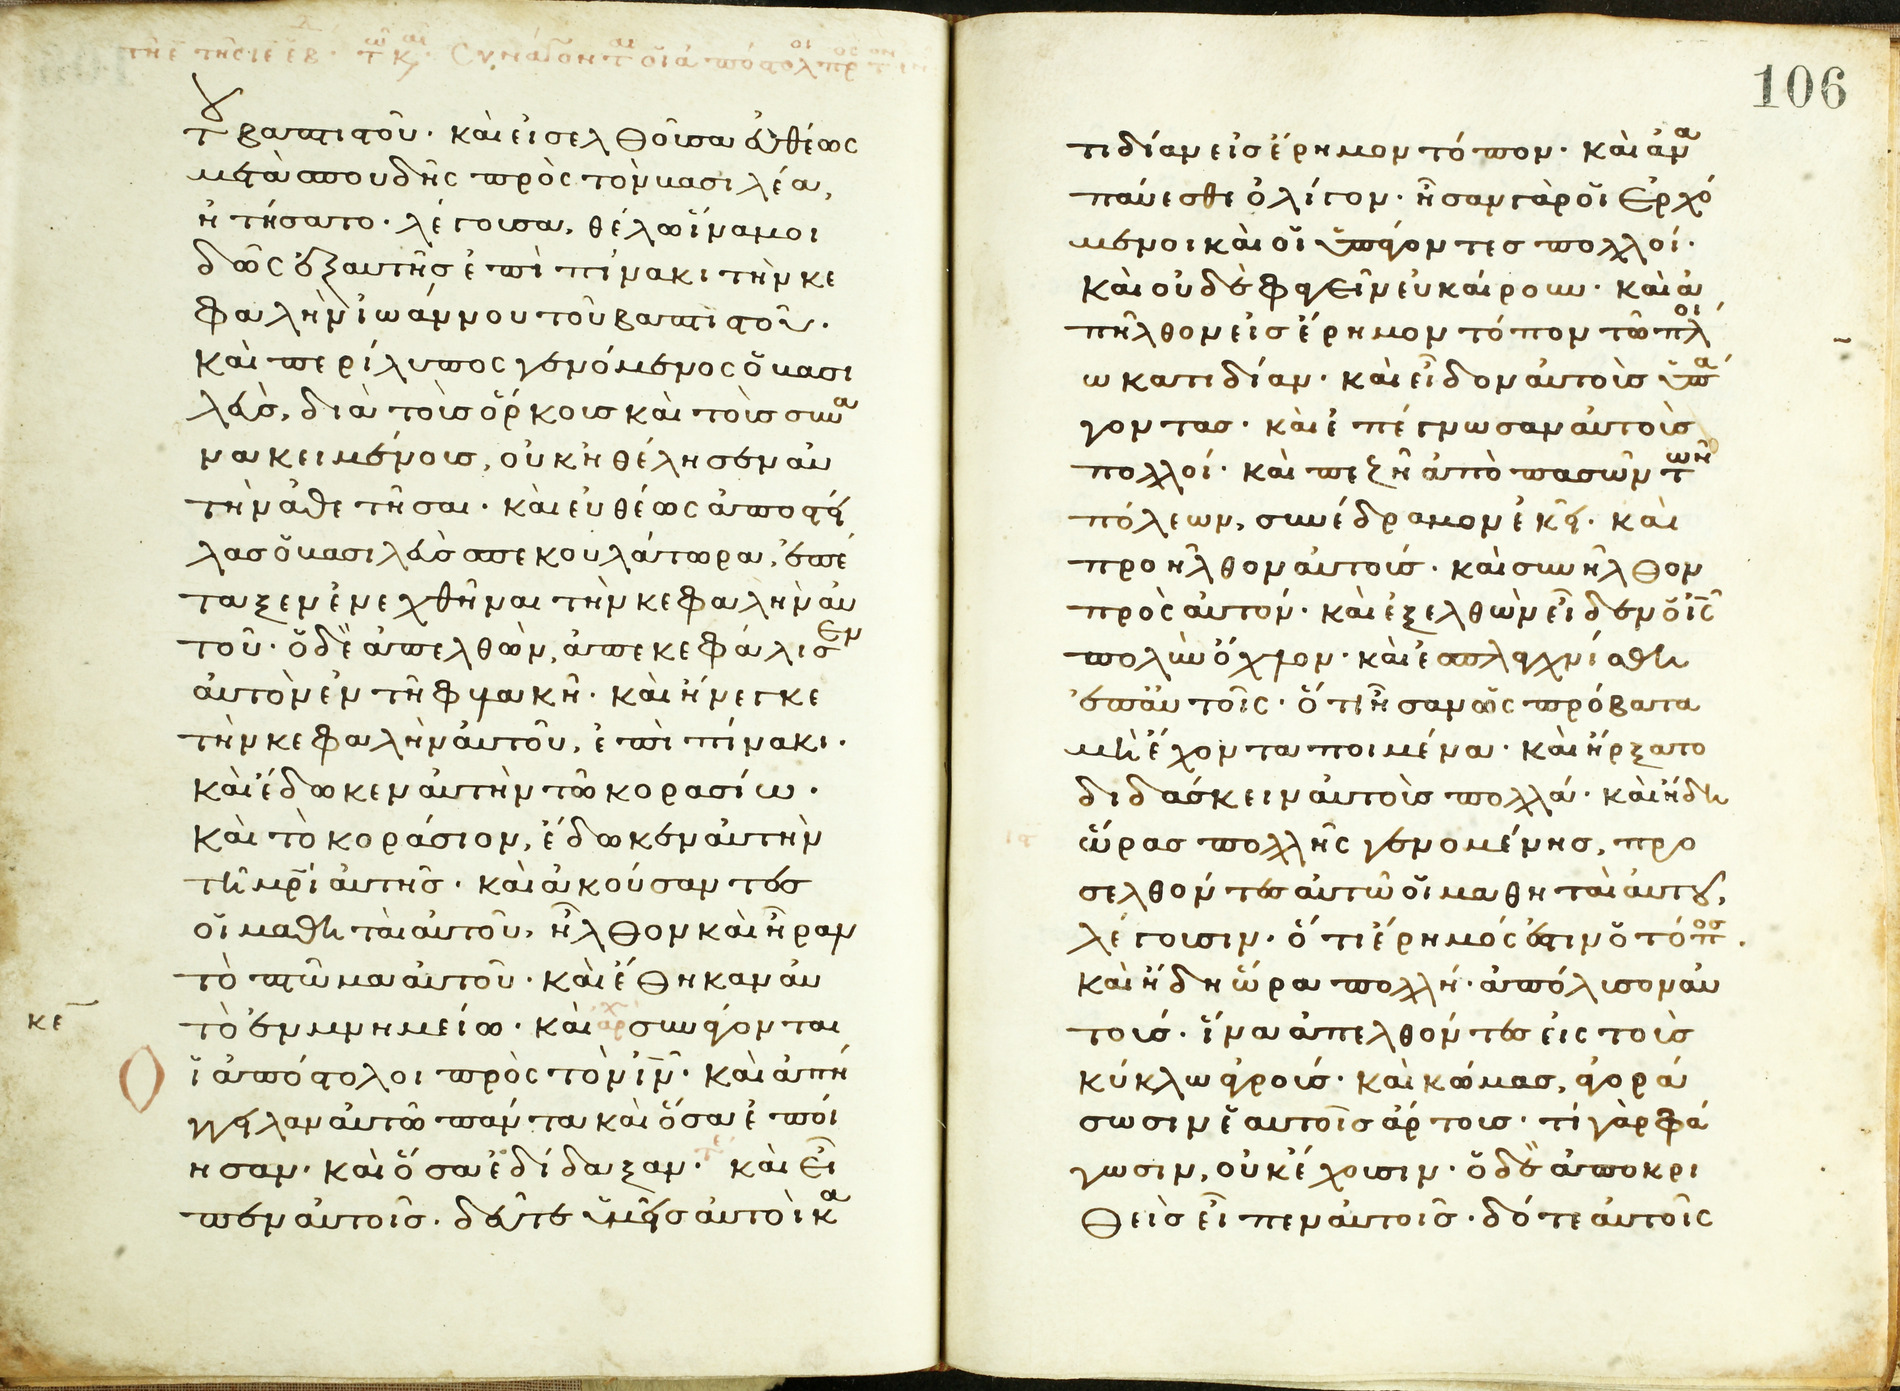 τῇ ε τῆς ιε ἑβ · τ κ · συνάγοντ οἱ ἀπόστολ πρ τ ιν
τοῦ βαπτιστοῦ · καὶ εἰσελθοῦσα εὐθέως
μετὰ σπουδῆς πρὸς τὸν βασιλέα,
ἠτήσατο · λέγουσα, θέλω ἵνα μοι
δῶς ἐξαυτῆς ἐπὶ πίνακι τὴν κε
φαλὴν ἰωάννου τοῦ βαπτιστοῦ ·
καὶ περίλυπος γενόμενος ὁ βασι
λεὺς, διὰ τοὺς ὅρκους καὶ τοὺς συνα
νακειμένους, οὐκ ἠθέλησεν αὐ
τὴν ἀθετῆσαι · καὶ εὐθέως ἀποστεί
λας ὁ βασιλεὺς σπεκουλάτωρα, ἐπέ
ταξεν ἐνεχθῆναι τὴν κεφαλὴν αὐ
τοῦ · ὁ δὲ ἀπελθὼν, ἀπεκεφάλισεν
αὐτὸν ἐν τῇ φυλακῇ · καὶ ἤνεγκε
τὴν κεφαλὴν αὐτοῦ, ἐπὶ πίνακι ·
καὶ ἔδωκεν αὐτὴν τῷ κορασίω ·
καὶ τὸ κοράσιον, ἔδωκεν αὐτὴν
τῇ μρὶ αὐτῆς · καὶ ἀκούσαντες
οἱ μαθηταὶ αὐτοῦ, ἦλθον καὶ ἦραν
τὸ πτῶμα αὐτοῦ · καὶ ἔθηκαν αὐ
κε τὸ ἐν μνημείω · καὶ αρχ συνάγονται
Οἱ ἀπόστολοι πρὸς τὸν ἰν · καὶ ἀπή
γγειλαν αὐτῷ πάντα καὶ ὅσα ἐποί
ησαν · καὶ ὅσα ἐδίδαξαν · τε καὶ εἶ
πεν αὐτοῖς · δεῦτε ὑμεῖς αὐτοὶ κα
106
τιδίαν εἰς ἔρημον τόπον · καὶ ἀνα
παύεσθε ὀλίγον · ἦσαν γὰρ οἱ ἐρχό
μενοι καὶ οἱ ὑπάγοντες πολλοί ·
καὶ οὐδὲ φαγεῖν εὐκαίρουν · καὶ ἀ
πῆλθον εἰς ἔρημον τόπον τῷ πλοί
ω κατιδίαν · καὶ εἶδον αὐτοὺς ὑπά
γοντας · καὶ ἐπέγνωσαν αὐτοὺς
πολλοί · καὶ πεζῇ ἀπὸ πασῶν τῶν
πόλεων, συνέδραμον ἐκεῖ · καὶ
προῆλθον αὐτούς · καὶ συνῆλθον
πρὸς αὐτόν · καὶ ἐξελθὼν εἶδεν ὁ ἰς
πολὺν ὄχλον · καὶ ἐσπλαγχνίσθη
ἐπ' αὐτοῖς · ὅτι ἦσαν ὡς πρόβατα
μὴ ἔχοντα ποιμένα · καὶ ἤρξατο
διδάσκειν αὐτοὺς πολλά · καὶ ἤδη
ὥρας πολλῆς γενομένης, προ
σελθόντες αὐτῷ οἱ μαθηταὶ αὐτοῦ,
λέγουσιν · ὅτι ἔρημός ἐστιν ὁ τόπος .
καὶ ἤδη ὥρα πολλή · ἀπόλυσον αὐ
τούς · ἵνα ἀπελθόντες εἰς τοὺς
κύκλω ἀγρούς · καὶ κώμας, ἀγορά
σωσιν ἑαυτοῖς ἄρτους · τί γὰρ φά
γωσιν, οὐκ ἔχουσιν · ὁ δὲ ἀποκρι
θεὶς εἶπεν αὐτοῖς · δότε αὐτοῖς